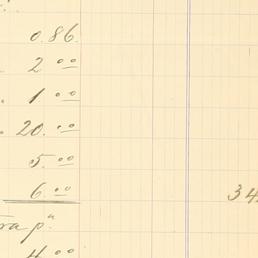 0.86.
2.00
1.00
20.00
5.00
6.00
34
4.00